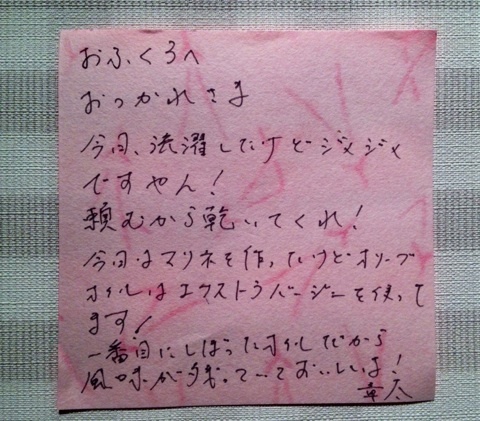 おふくろへ
おつかれさま
今日、洗濯したけどジメジメ
ですやん！
頼むから乾いてくれ！
今日はマリネを作ったけどオリーブ
オイルはエクストラバージンを使って
ます！
一番目にしぼったオイルだから
風味が残っていておいしいよ！
章太